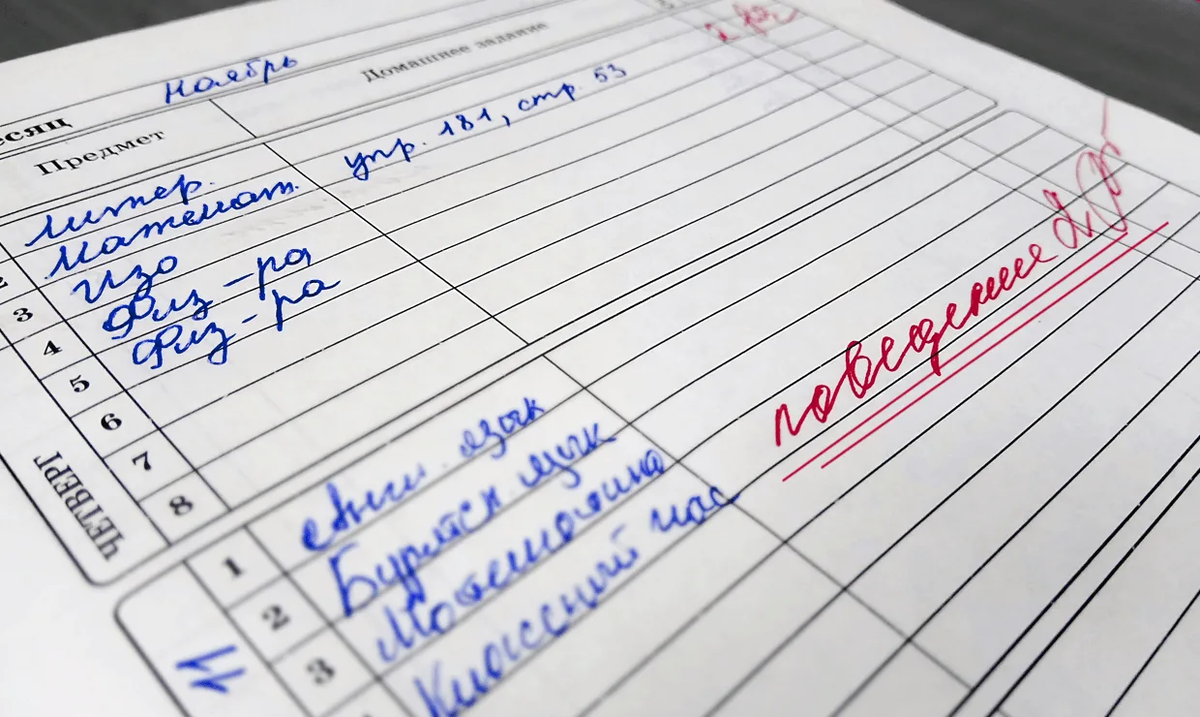 есяц Ноябрь
Предмет Домашнее задание
Литер.
2 Математ. упр. 181, стр. 53
3 Изо
4 Физ-ра
5 Физ-ра
6
7
8
ЧЕТВЕРГ
поведение 2
1 Англ. язык
2 Бурятск язык
3 Математика
Классный час
11